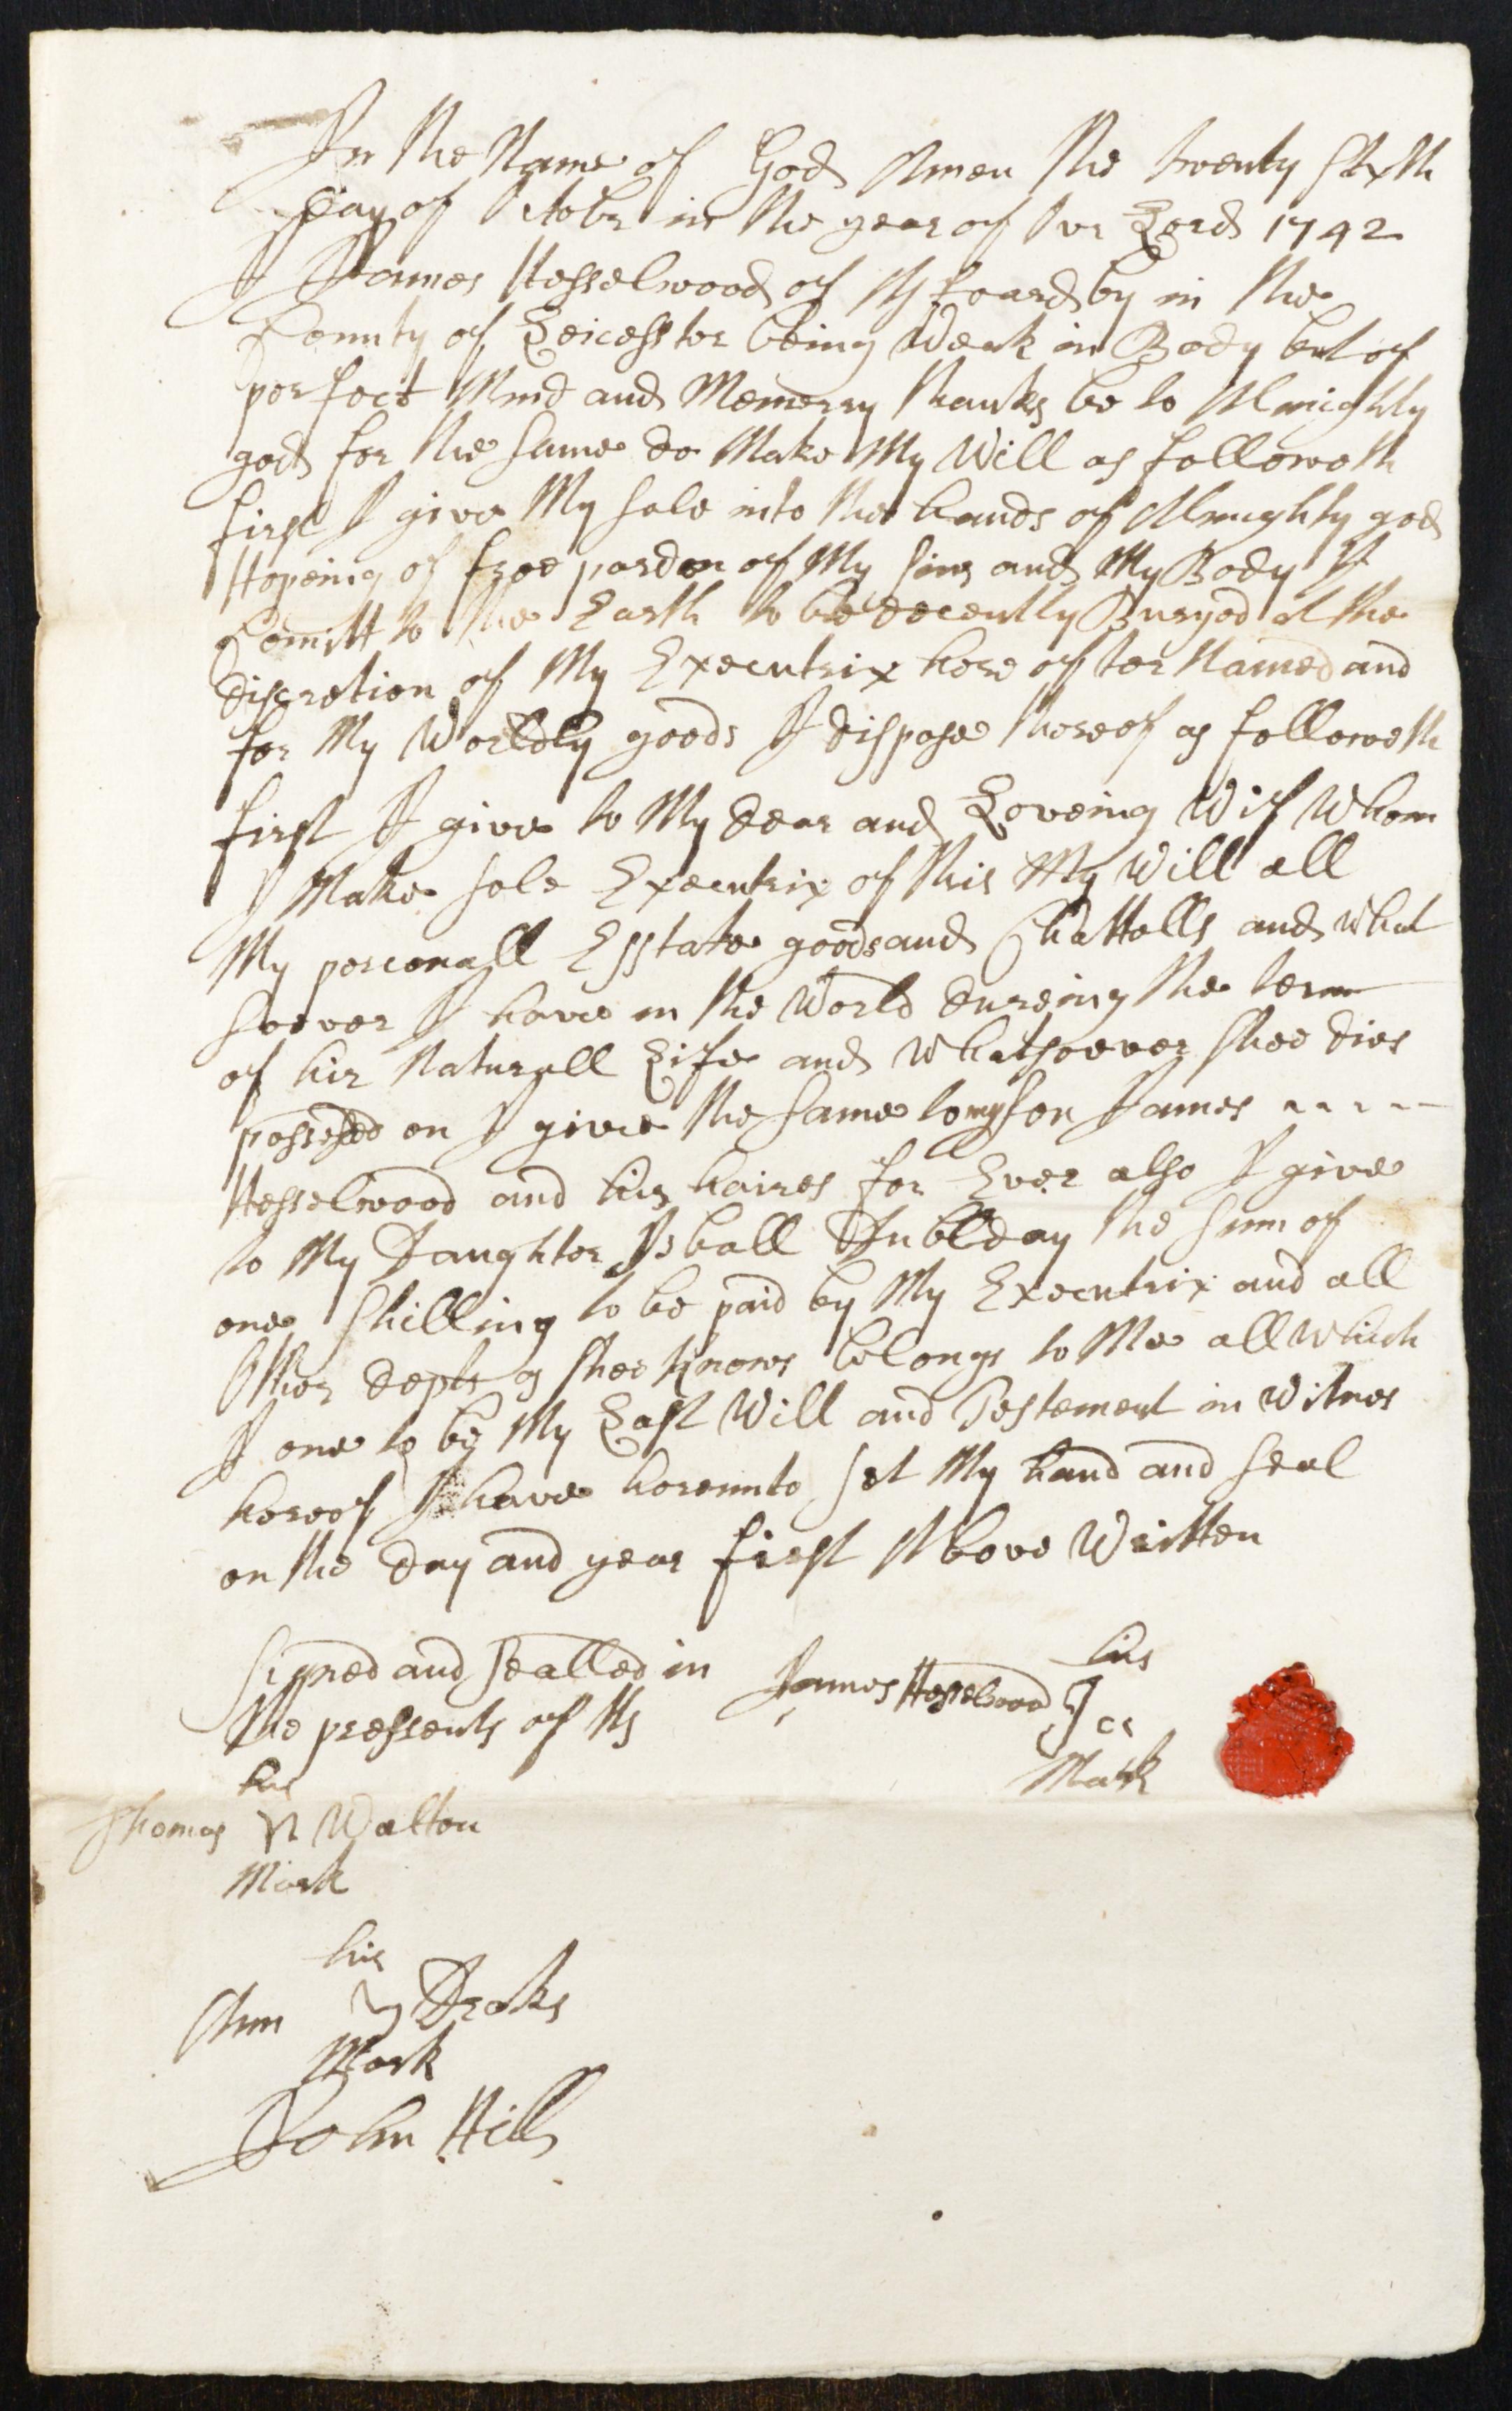 In the Name of God Amen the twenty sixth
Day of October in the year of our Lord 1742
I James Hesselwood of Asfoardby in the
County of Leicesster being Weak in Body but of
perfect Mind and Memerry thanks be to Almighty
god for the same do Make My Will as followeth
first I give My sole into the hands of Almughty god
Hopeing of free pardon of My sins and My Body I
Comitt to the Earth to be decently Buryed at the
discretion of My Executrix here after Named and
for My Worldly goods I dispose thereof as followeth
first I give to My dear and Loveing Wif Whom
I Make sole Executrix of this My Will all
My perconall Esstate goods and Chattells and what
soever I have in the World dureing the term
of hir Naturall Life and Whatsoever shee dies
possessed on I give the same to my son James - - - -
Hesselwood and his haires for Ever also I give
to My Daughter Isball Dubleday the sum of
one shilling to be paid by My Executrix and all
Other depts as shee knows belongs to Me all Which
I one to be My Last Will and Testement in Witnes
hereof I have hereunto set My hand and seal
on the day and year first Above Written
Signed and sealled in James Hesselwood his
the pressents of Us
Mark
his
Thomas Walton
Mark
his
Ann Draks
Mark
John Hill